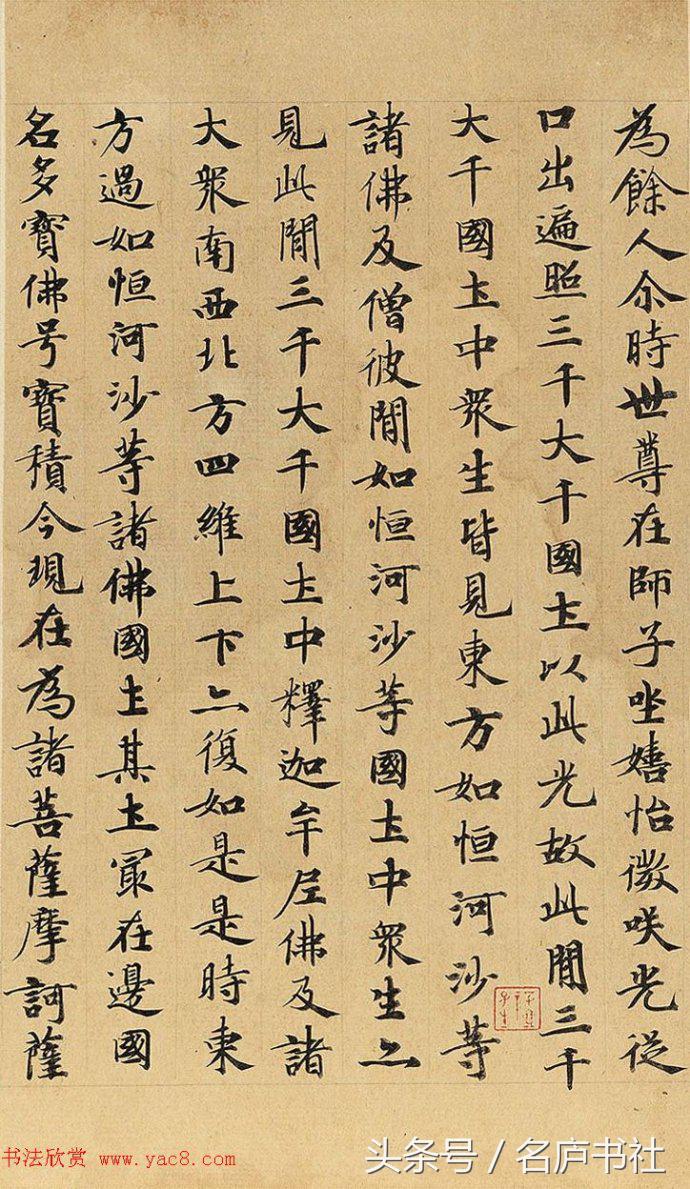 為餘人尒時世尊在師子坐嬉怡微咲光從
口出遍照三千大千國土以此光故此閒三千
大千國土中衆生皆見東方如恒河沙等
諸佛及僧彼閒如恒河沙等國土中衆生亦
見此閒三千大千國土中釋迦牟尼佛及諸
大衆南西北方四維上下亦復如是是時東
方過如恒河沙等諸佛國土其土冣在邊國
名多寶佛号寶積今現在為諸菩薩摩訶薩
书法欣赏 www.yac8.com
头条号/名庐书社